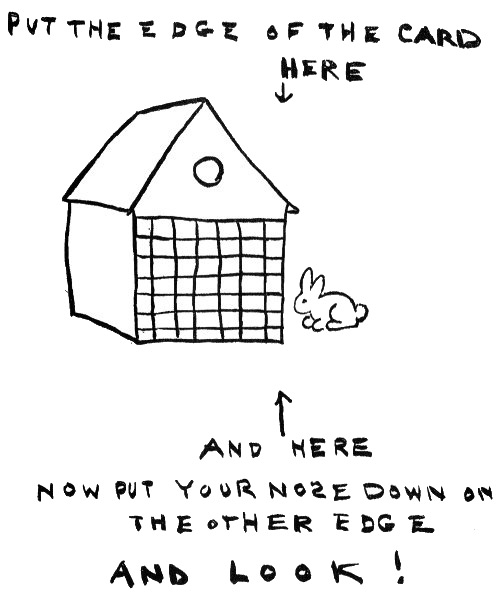 PUT THE EDGE OF THE CARD
HERE
AND HERE
NOW PUT YOUR NOSE DOWN ON
THE OTHER EDGE
AND LOOK!